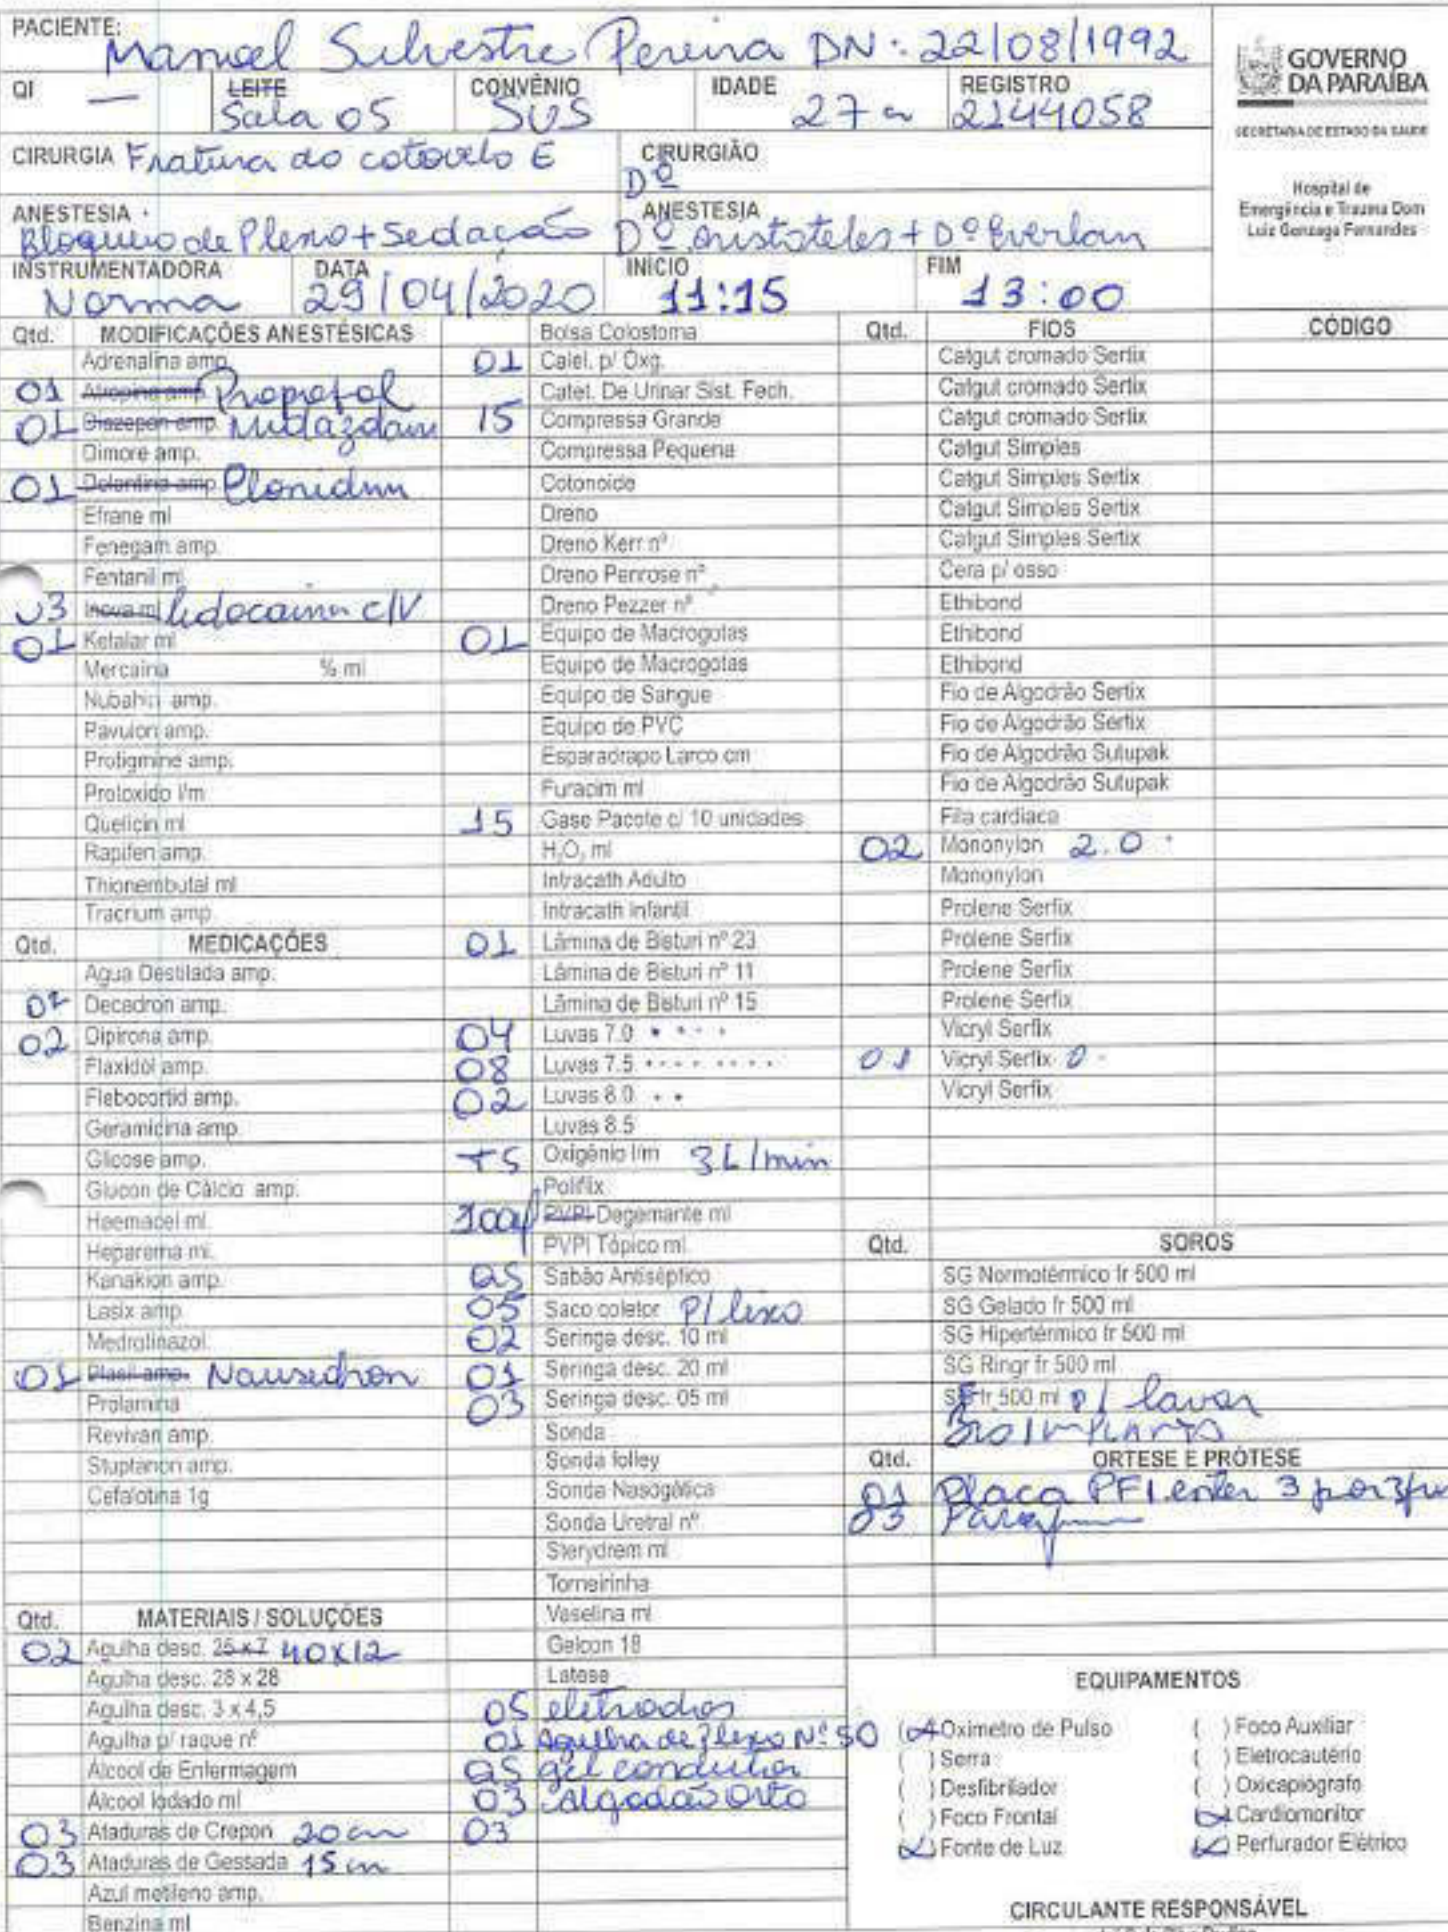 PACIENTE: Manoel Silvestre Pereira DN: 22/08/1992
GOVERNO
DA PARAÍBA
SECRETARIA DE ESTADO DA SAÚDE
Hospital de
Emergência e Trauma Dom
Luiz Gonzaga Fernandes
QI — LEITE Sala 05 CONVÊNIO SUS IDADE 27 a REGISTRO 2144058
CIRURGIA Fratura do cotovelo E CIRURGIÃO Dº
ANESTESIA Bloqueio de Plexo + Sedação ANESTESIA Dº Aristoteles + Dº Everlan
INSTRUMENTADORA Norma DATA 29/04/2020 INÍCIO 11:15 FIM 13:00
Qtd. MODIFICAÇÕES ANESTÉSICAS
Adrenalina amp.
01 Atropina amp. Propofol
01 Diazepan amp. Midazolam
Dimore amp.
01 Dolantina amp Clonidin
Efrane ml
Fenegam amp.
Fentanil ml
03 Inova ml lidocaina c/V
01 Ketalar ml
Mercaina % ml
Nubahin amp.
Pavulon amp.
Protigmine amp.
Protoxido l/m
Quelicin ml
Rapifen amp.
Thionembutal ml
Tracrium amp
Qtd. MEDICAÇÕES
Agua Destilada amp.
Decedron amp.
02 Dipirona amp.
Flaxidol amp.
Flebocortid amp.
Geramicina amp.
Glicose amp.
Glucon de Cálcio amp.
Haemacel ml.
Heparema ml.
Kanakion amp.
Lasix amp
Medrolinazol.
01 Plasil amp. Nausedron
Prolamina
Revivan amp.
Stuplanon amp.
Cefalotina 1g
Qtd. MATERIAIS / SOLUÇÕES
02 Agulha desc. 25 x 7 40x12
Agulha desc. 28 x 28
Agulha desc. 3 x 4,5
Agulha p/ raque nº
Álcool de Enfermagem
Álcool Iodado ml
03 Ataduras de Crepon 20 cm
03 Ataduras de Gessada 15 cm
Azul metileno amp.
Benzina ml
Bolsa Colostoma
01 Catet. p/ Oxg.
Catet. De Urinar Sist. Fech.
15 Compressa Grande
Compressa Pequena
Cotonoide
Dreno
Dreno Kerr nº
Dreno Penrose nº
Dreno Pezzer nº
01 Equipo de Macrogotas
Equipo de Macrogotas
Equipo de Sangue
Equipo de PVC
Esparadrapo Larco cm
Furacim ml
15 Gase Pacote c/ 10 unidades
H₂O₂ ml
Intracath Adulto
Intracath Infantil
01 Lâmina de Bisturi nº 23
Lâmina de Bisturi nº 11
Lâmina de Bisturi nº 15
04 Luvas 7.0 • • • •
08 Luvas 7.5 • • • • • • • •
02 Luvas 8.0 • •
Luvas 8.5
Oxigênio l/m 3L/min
Polifix
PVPI Degemante ml
PVPI Tópico ml
Sabão Antiséptico
05 Saco coletor p/ lixo
02 Seringa desc. 10 ml
01 Seringa desc. 20 ml
03 Seringa desc. 05 ml
Sonda
Sonda folley
Sonda Nasogática
Sonda Uretral nº
Sterydrem ml
Torneirinha
Vaselina ml
Gelcon 18
Latese
05 eletrodos
01 Agulha de Plexo Nº 50
gel condutor
03 Algodão Orto
03
Qtd. FIOS CÓDIGO
Catgut cromado Sertix
Catgut cromado Sertix
Catgut cromado Sertix
Catgut Simples
Catgut Simples Sertix
Catgut Simples Sertix
Catgut Simples Sertix
Cera p/ osso
Ethibond
Ethibond
Ethibond
Fio de Algodrão Sertix
Fio de Algodrão Sertix
Fio de Algodrão Sutupak
Fio de Algodrão Sutupak
Fita cardiaca
02 Mononylon 2.0
Mononylon
Prolene Serfix
Prolene Serfix
Prolene Serfix
Prolene Serfix
Vicryl Serfix
01 Vicryl Serfix 0
Vicryl Serfix
Qtd. SOROS
SG Normotérmico fr 500 ml
SG Gelado fr 500 ml
SG Hipertérmico fr 500 ml
SG Ringr fr 500 ml
SF fr 500 ml p/ lavar
BIOIMPLANTS
Qtd. ORTESE E PRÓTESE
01 Placa
03
EQUIPAMENTOS
Oximetro de Pulso ( ) Foco Auxiliar
( ) Serra ( ) Eletrocautério
( ) Desfibrilador ( ) Oxicapiógrafo
( ) Foco Frontal Cardiomonitor
Fonte de Luz Perfurador Elétrico
CIRCULANTE RESPONSÁVEL